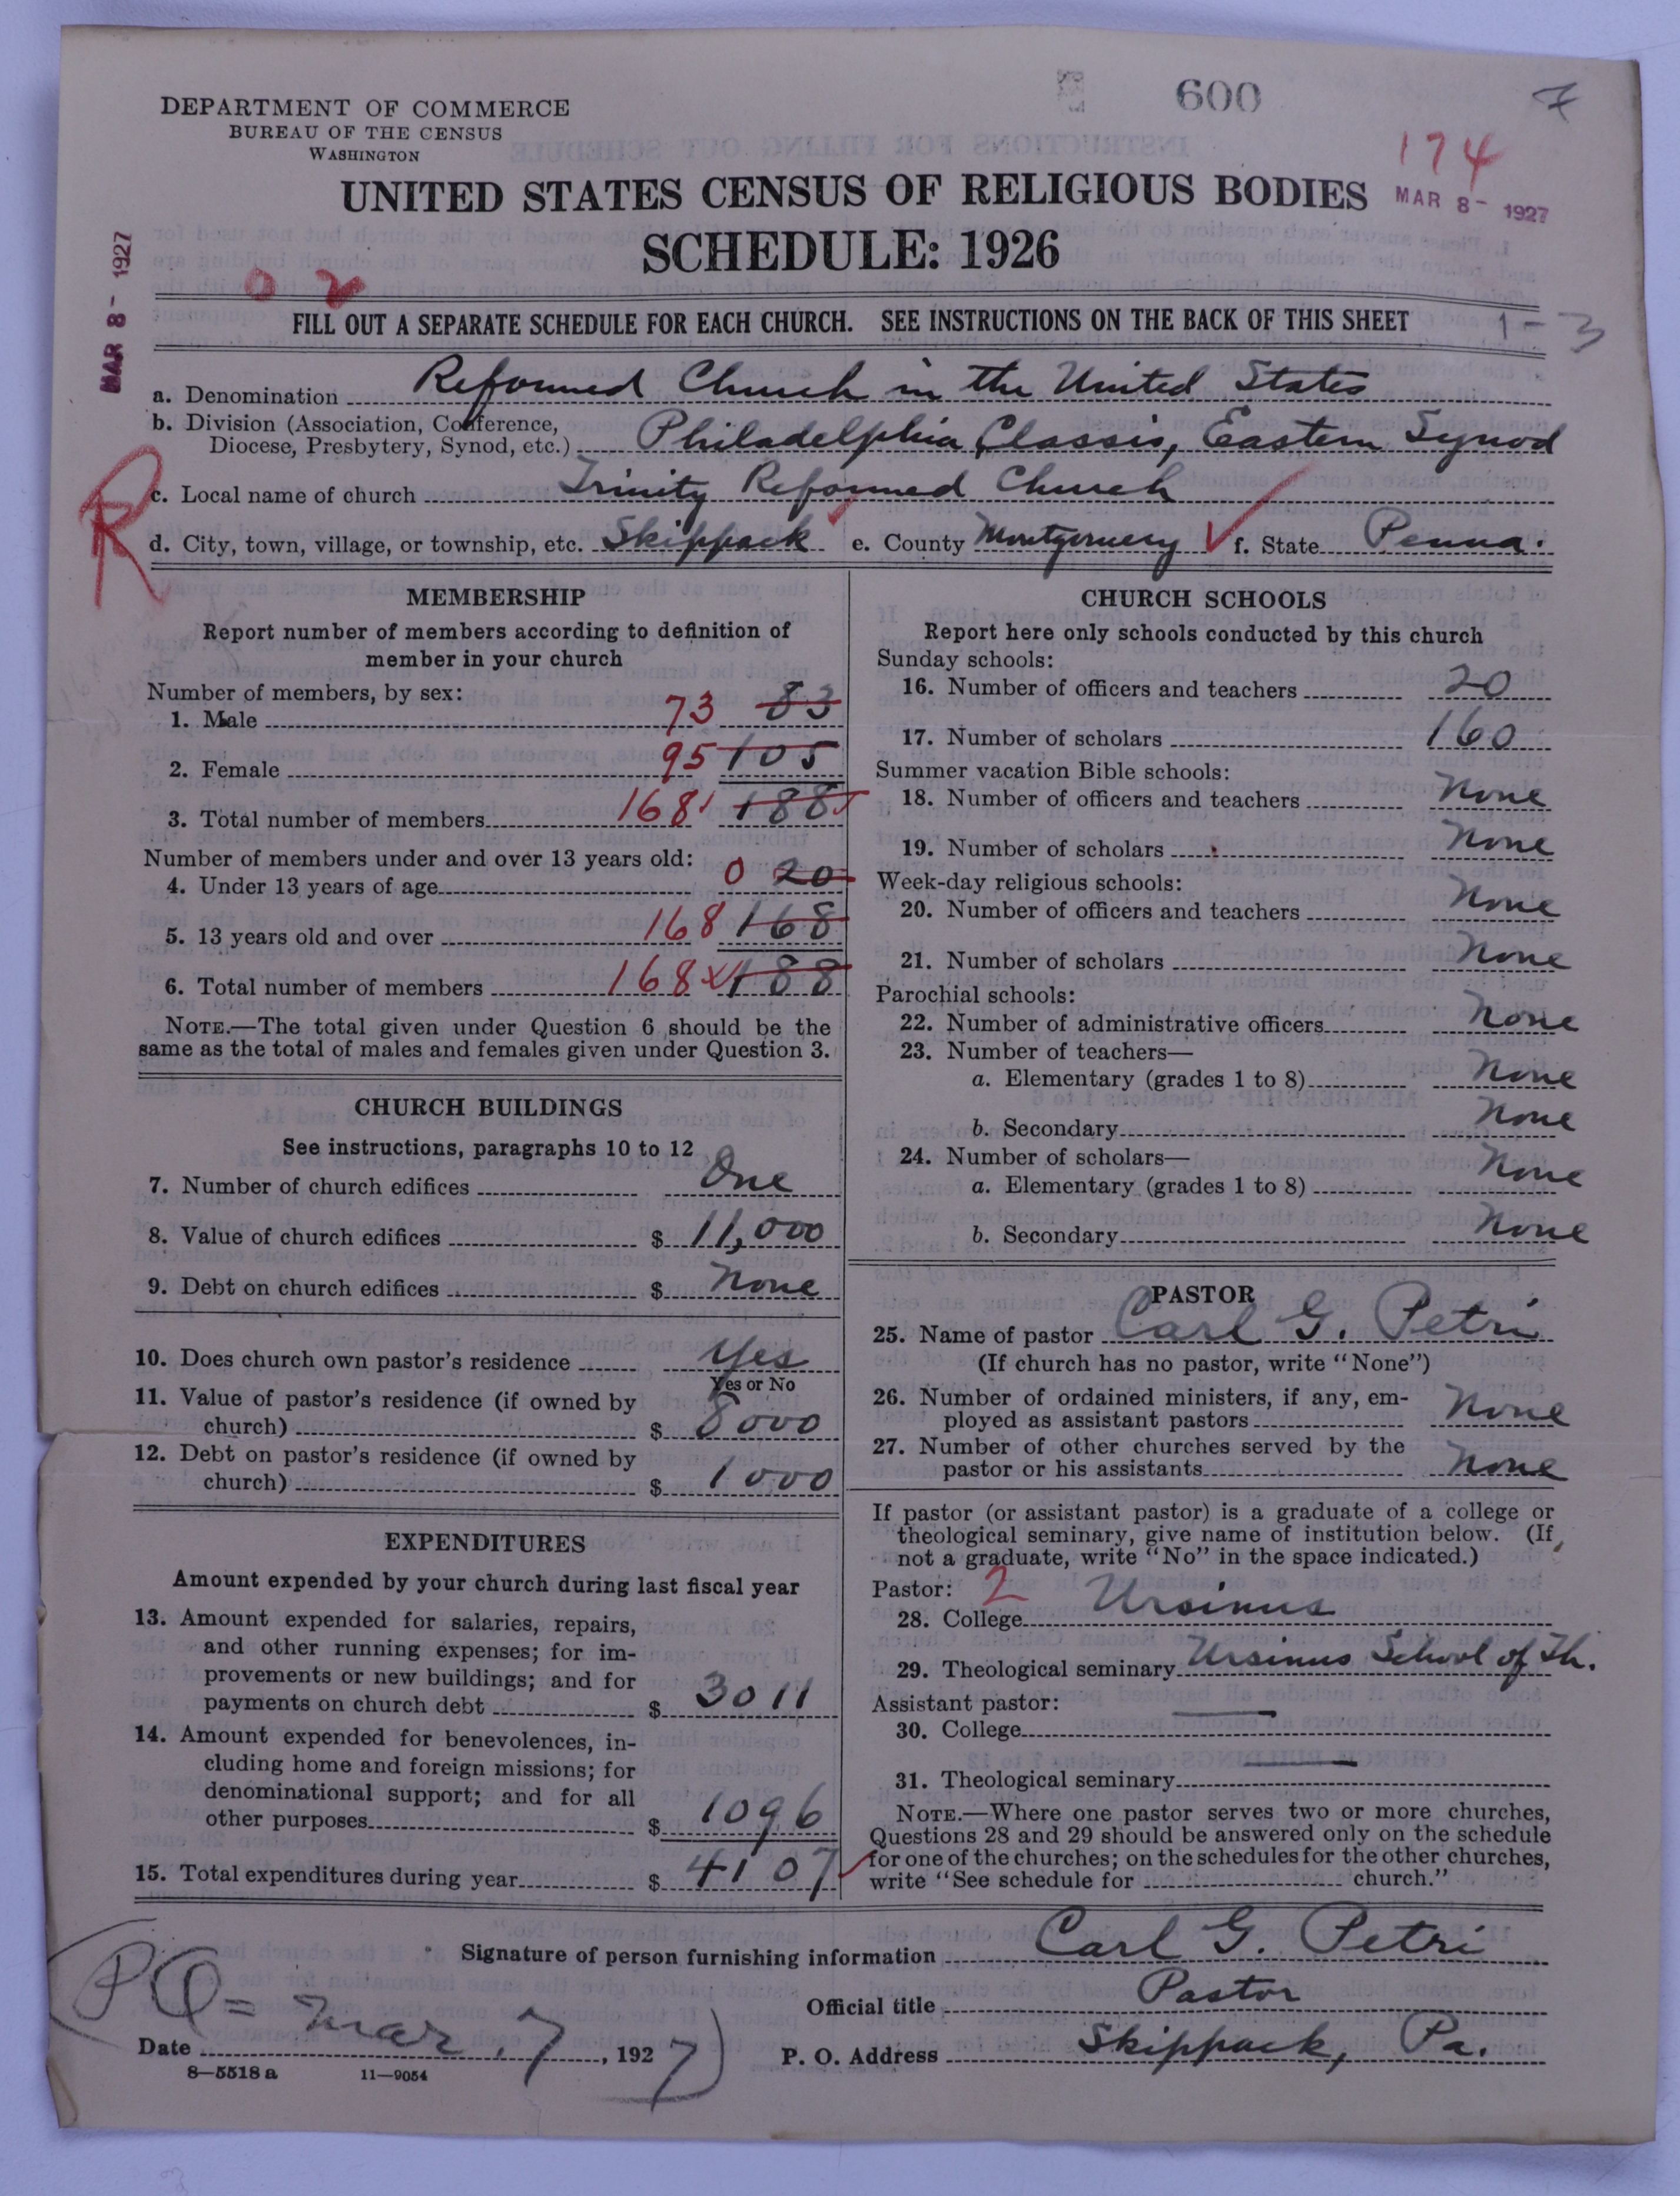 600
7
DEPARTMENT OF COMMERCE
BUREAU OF THE CENSUS
WASHINGTON
174
MAR 8- 1927
UNITED STATES CENSUS OF RELIGIOUS BODIES
SCHEDULE: 1926
MAR 8- 1927
0 2
FILL OUT A SEPARATE SCHEDULE FOR EACH CHURCH. SEE INSTRUCTIONS ON THE BACK OF THIS SHEET
1-3
a. Denomination Reformed Church in the United States
b. Division (Association, Conference,
Diocese, Presbytery, Synod, etc.) Philadelphia Classis, Eastern Synod
R
c. Local name of church Trinity Reformed Church
d. City, town, village, or township, etc. Skippack e. County Montgomery f. State Penna.
MEMBERSHIP
Report number of members according to definition of
member in your church
Number of members, by sex:
1. Male 73 83
2. Female 95 105
3. Total number of members 168 188
Number of members under and over 13 years old:
4. Under 13 years of age 0 20
5. 13 years old and over 168 168
6. Total number of members 168 x 188
NOTE.—The total given under Question 6 should be the
same as the total of males and females given under Question 3.
CHURCH BUILDINGS
See instructions, paragraphs 10 to 12
7. Number of church edifices One
8. Value of church edifices $ 11,000
9. Debt on church edifices $ None
10. Does church own pastor's residence Yes
Yes or No
11. Value of pastor's residence (if owned by
church) $ 8000
12. Debt on pastor's residence (if owned by
church) $ 1000
EXPENDITURES
Amount expended by your church during last fiscal year
13. Amount expended for salaries, repairs,
and other running expenses; for im-
provements or new buildings; and for
payments on church debt $ 3011
14. Amount expended for benevolences, in-
cluding home and foreign missions; for
denominational support; and for all
other purposes $ 1096
15. Total expenditures during year $ 4107
CHURCH SCHOOLS
Report here only schools conducted by this church
Sunday schools:
16. Number of officers and teachers 20
17. Number of scholars 160
Summer vacation Bible schools:
18. Number of officers and teachers None
19. Number of scholars None
Week-day religious schools:
20. Number of officers and teachers None
21. Number of scholars None
Parochial schools:
22. Number of administrative officers None
23. Number of teachers—
a. Elementary (grades 1 to 8) None
b. Secondary None
24. Number of scholars—
a. Elementary (grades 1 to 8) None
b. Secondary None
PASTOR
25. Name of pastor Carl G. Petri
(If church has no pastor, write "None")
26. Number of ordained ministers, if any, em-
ployed as assistant pastors None
27. Number of other churches served by the
pastor or his assistants None
If pastor (or assistant pastor) is a graduate of a college or
theological seminary, give name of institution below. (If
not a graduate, write "No" in the space indicated.)
Pastor: 2
28. College Ursinus
29. Theological seminary Ursinus School of Th.
Assistant pastor:
30. College
31. Theological seminary
NOTE.—Where one pastor serves two or more churches,
Questions 28 and 29 should be answered only on the schedule
for one of the churches; on the schedules for the other churches,
write "See schedule for church."
Signature of person furnishing information Carl G. Petri
Official title Pastor
PO=
Date Mar. 7, 1927
P. O. Address Skippack, Pa.
8—5518 a 11—9054